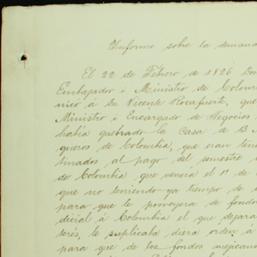 Informe sobre la demanda
El 22 de Febrero de 1826 Don
Embajador ó Ministro de Colom
nico á Sn Vicente Rocafuerte, que
Ministro ó Encargado de Negocios
había quebrado la Casa de B.
queros de Colombia, que eran
tinados al pago del semestre
de Colombia que vencía el 1º de
que no teniendo ya tiempo de
para que le proveyera de fondos
dicial á Colombia el que
terés, le suplicaba diera orden á
para que de los fondos mejicanos